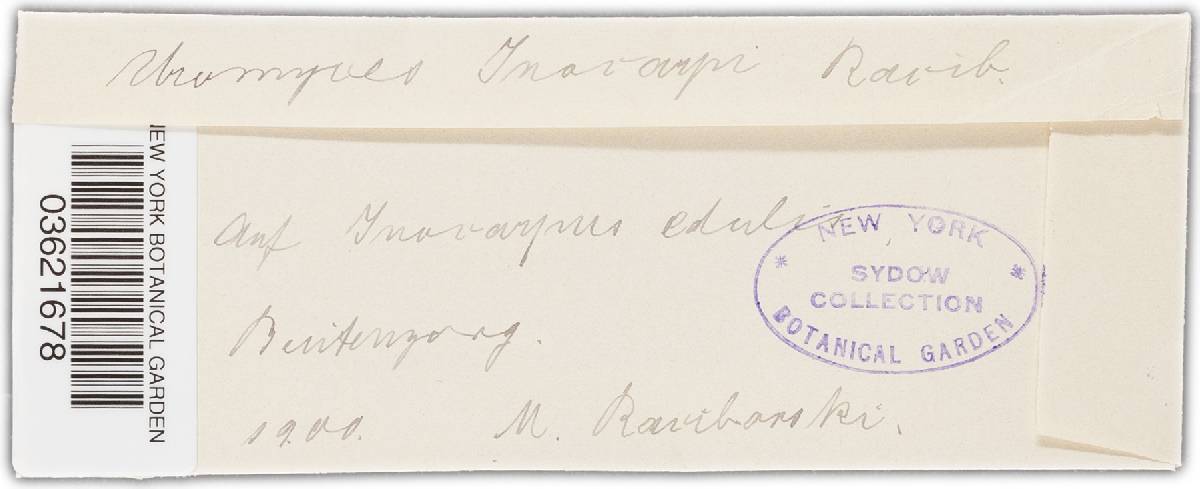 Uromyces Inocarpi Racib.
NEW YORK BOTANICAL GARDEN
03621678
Auf Inocarpus edulis,
Buitenzorg.
1900. M. Raciborski.
NEW YORK
SYDOW
COLLECTION
BOTANICAL GARDEN